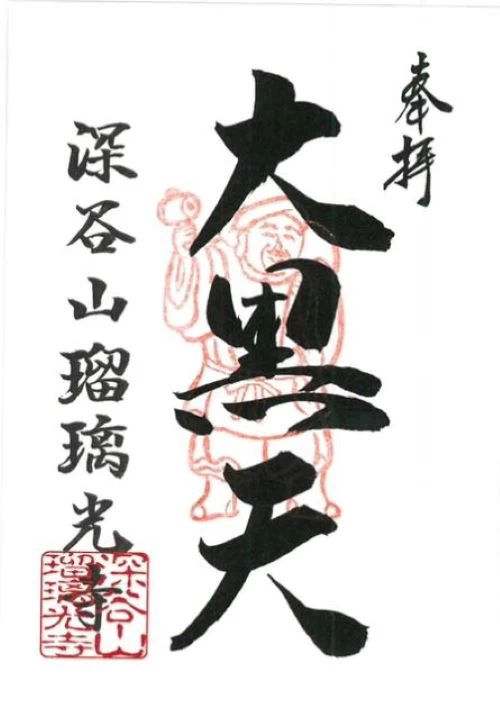 奉拝
大黒天
深谷山瑠璃光寺
深谷山
瑠璃光寺